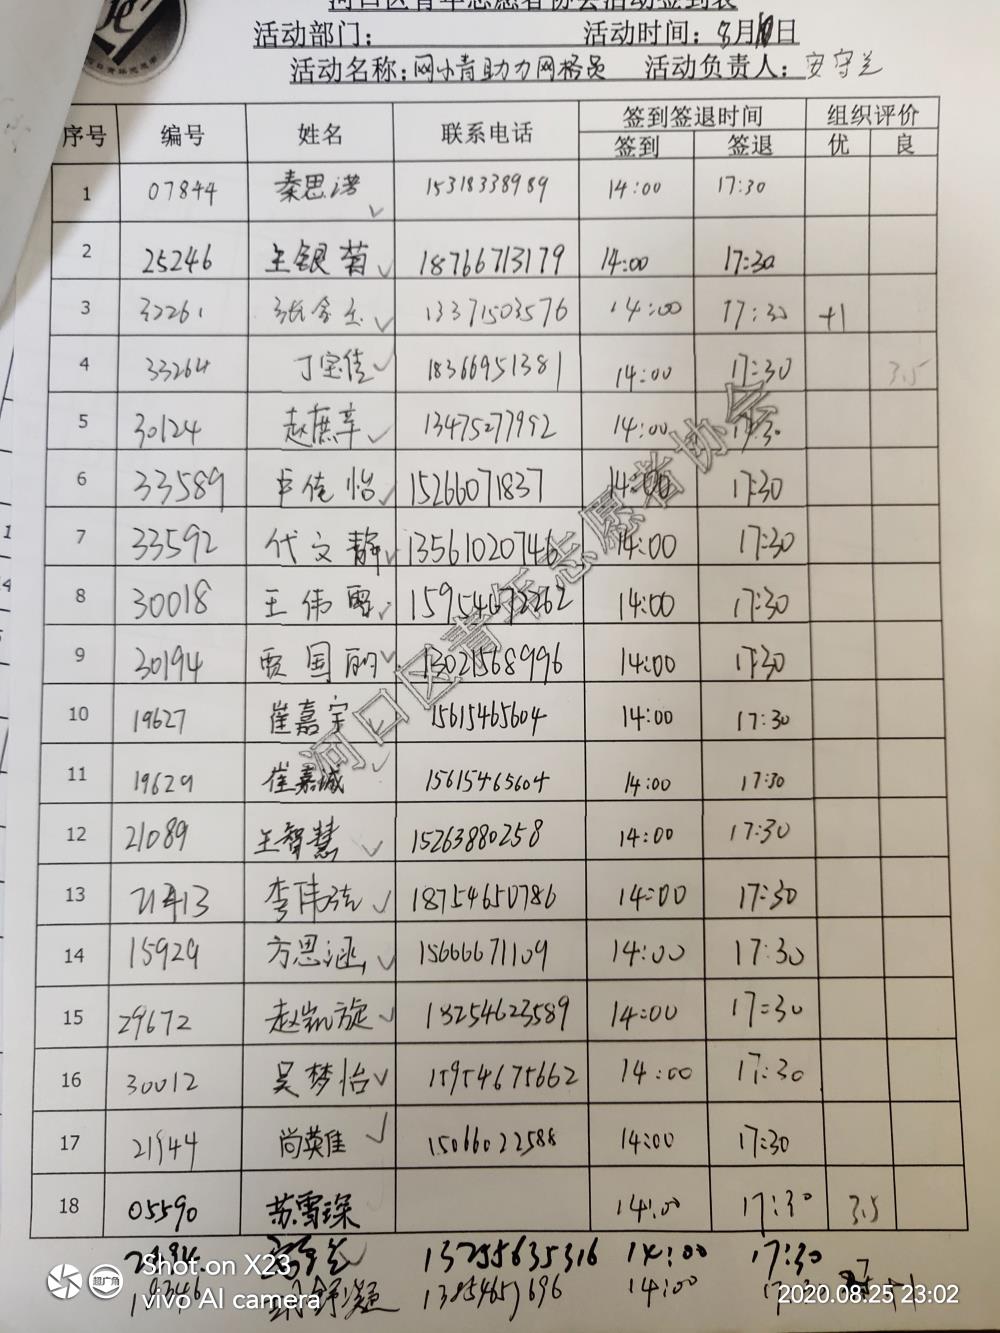 河口区青年志愿者协会活动签到表
活动部门： 活动时间：8月10日
活动名称：网小青助力网格员 活动负责人：安守芝
序号 编号 姓名 联系电话 签到签退时间 组织评价
签到 签退 优 良
1 07844 秦思诺 15318338989 14:00 17:30
2 25246 王银菊 18766713179 14:00 17:30
3 32261 13371503576 14:00 17:30 +1
4 33264 丁宝佳 18366951381 14:00 17:30 3.5
5 30124 赵庶幸 13475277992 14:00 17:30
6 33589 卢佳怡 15266071837 14:00 17:30
7 33592 代文静 13561020746 14:00 17:30
8 30018 王伟 14:00 17:30
9 30194 贾国丽 13021568996 14:00 17:30
10 19627 崔嘉宇 15615465604 14:00 17:30
11 19629 崔嘉诚 15615465604 14:00 17:30
12 21089 王智慧 15263880258 14:00 17:30
13 李伟 18754650786 14:00 17:30
14 15929 方思涵 15666671109 14:00 17:30
15 29672 赵凯旋 18254623589 14:00 17:30
16 30012 吴梦怡 15954675662 14:00 17:30
17 21944 尚英佳 15066022588 14:00 17:30
18 05590 苏雪琛 14:00 17:30 3.5
13255635316 14:00 17:30
14:00 +1
河口区青年志愿者协会
Shot on X23
vivo AI camera
超广角
2020.08.25 23:02